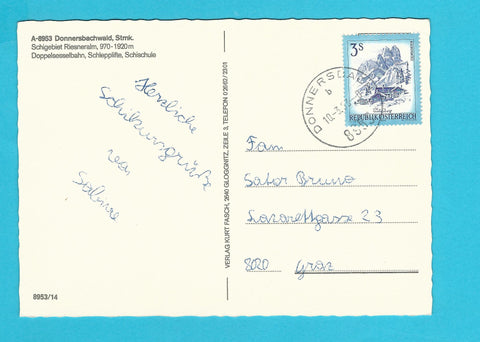 A-8953 Donnersbachwald, Stmk.
Schigebiet Riesneralm, 970-1920m
Doppelsesselbahn, Schlepplifte, Schischule
Herzliche
Schikursgrüße
von
Sabine
8953/14
VERLAG KURT FASCH, 2640 GLOGGNITZ, ZEILE 3, TELEFON 0 26/62/2301
3S
REPUBLIK ÖSTERREICH
DONNERSBA
b
895
Fam.
Sator Bruno
Lazarettgasse 23
8020 Graz